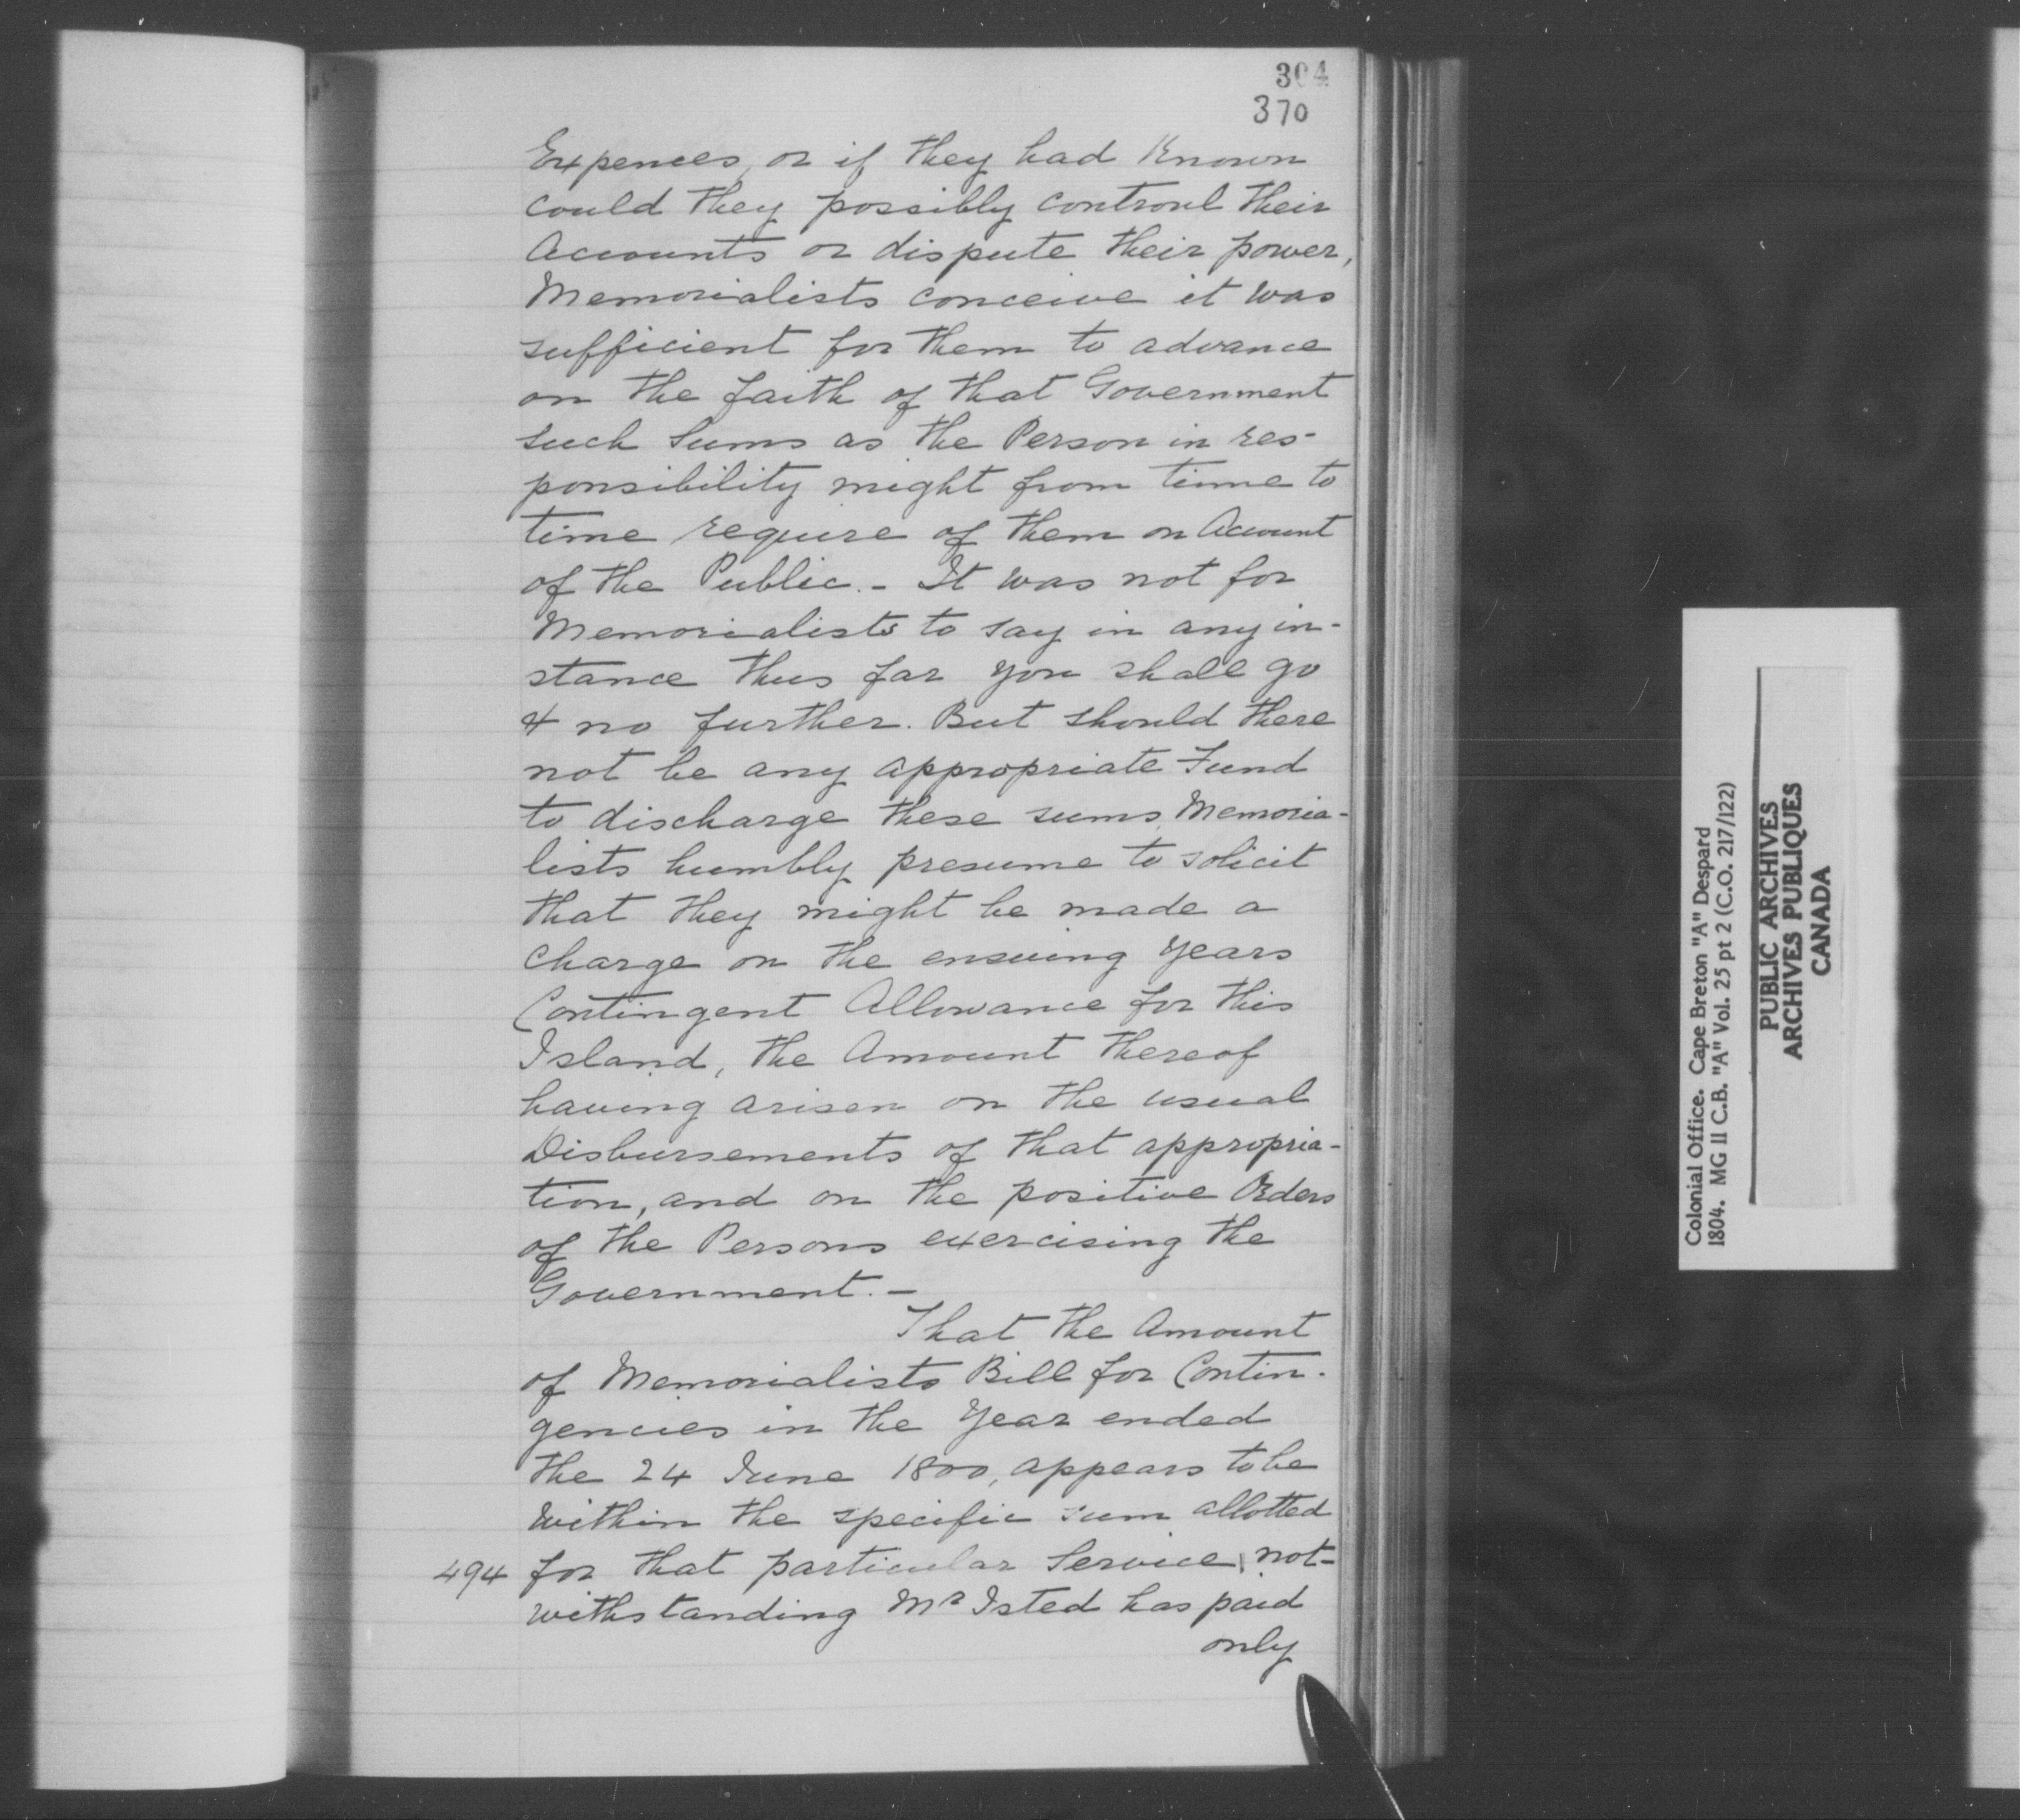 304
370
Expences, or if they had Known
could they possibly controul their
Accounts or dispute their power,
Memorialists conceive it was
sufficient for them to advance
on the faith of that Government
such Sums as the Person in res-
ponsibility might from time to
time require of them on Account
of the Public. - It was not for
Memorialists to say in any in-
stance thus far you shall go
& no further. But should there
not be any appropriate Fund
to discharge these sums, Memoria-
lists humbly presume to solicit
that they might be made a
charge on the ensuing years
Contingent Allowance for this
Island, the Amount thereof
having arisen on the usual
Disbursements of that appropria-
tion, and on the positive Orders
of the Persons exercising the
Government. -
That the Amount
of Memorialists Bill for Contin-
gencies in the Year ended
the 24 June 1800, appears to be
within the specific sum allotted
494 for that particular Service, not-
withstanding Mr Isted has paid
only
Colonial Office. Cape Breton "A" Despard
1804. MG 11 C.B. "A" Vol. 25 pt 2 (C.O. 217/122)
PUBLIC ARCHIVES
ARCHIVES PUBLIQUES
CANADA